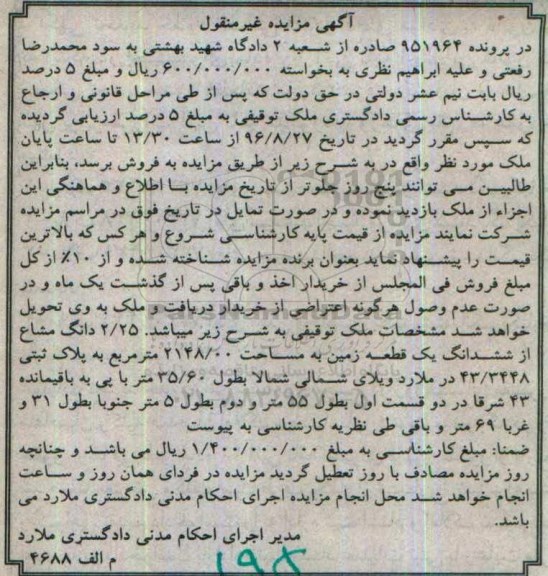 آگهی مزایده غیرمنقول
در پرونده ۹۵۱۹۶۴ صادره از شعبه ۲ دادگاه شهید بهشتی به سود محمدرضا
رفعتی و علیه ابراهیم نظری به بخواسته ۶۰۰/۰۰۰/۰۰۰ ریال و مبلغ ۵ درصد
ریال بابت نیم عشر دولتی در حق دولت که پس از طی مراحل قانونی و ارجاع
به کارشناس رسمی دادگستری ملک توقیفی به مبلغ ۵ درصد ارزیابی گردیده
که سپس مقرر گردید در تاریخ ۹۶/۸/۲۷ از ساعت ۱۳/۳۰ تا ساعت پایان
ملک مورد نظر واقع در به شرح زیر از طریق مزایده به فروش برسد، بنابراین
طالبین می توانند پنج روز جلوتر از تاریخ مزایده با اطلاع و هماهنگی این
اجراء از ملک بازدید نموده و در صورت تمایل در تاریخ فوق در مراسم مزایده
شرکت نمایند مزایده از قیمت پایه کارشناسی شروع و هر کس که بالاترین
قیمت را پیشنهاد نماید بعنوان برنده مزایده شناخته شده و از ۱۰٪ از کل
مبلغ فروش فی المجلس از خریدار اخذ و باقی پس از گذشت یک ماه و در
صورت عدم وصول هرگونه اعتراضی از خریدار دریافت و ملک به وی تحویل
خواهد شد مشخصات ملک توقیفی به شرح زیر میباشد. ۲/۲۵ دانگ مشاع
از ششدانگ یک قطعه زمین به مساحت ۲۱۴۸/۰۰ مترمربع به پلاک ثبتی
۴۳/۳۴۴۸ در ملارد ویلای شمالی شمالا بطول ۳۵/۶۰ متر با پی به باقیمانده
۴۳ شرقا در دو قسمت اول بطول ۵۵ متر و دوم بطول ۵ متر جنوبا بطول ۳۱ و
غربا ۶۹ متر و باقی طی نظریه کارشناسی به پیوست
ضمنا: مبلغ کارشناسی به مبلغ ۱/۴۰۰/۰۰۰/۰۰۰ ریال می باشد و چنانچه
روز مزایده مصادف با روز تعطیل گردید مزایده در فردای همان روز و ساعت
انجام خواهد شد محل انجام مزایده اجرای احکام مدنی دادگستری ملارد می
باشد.
مدیر اجرای احکام مدنی دادگستری ملارد
م الف ۴۶۸۸